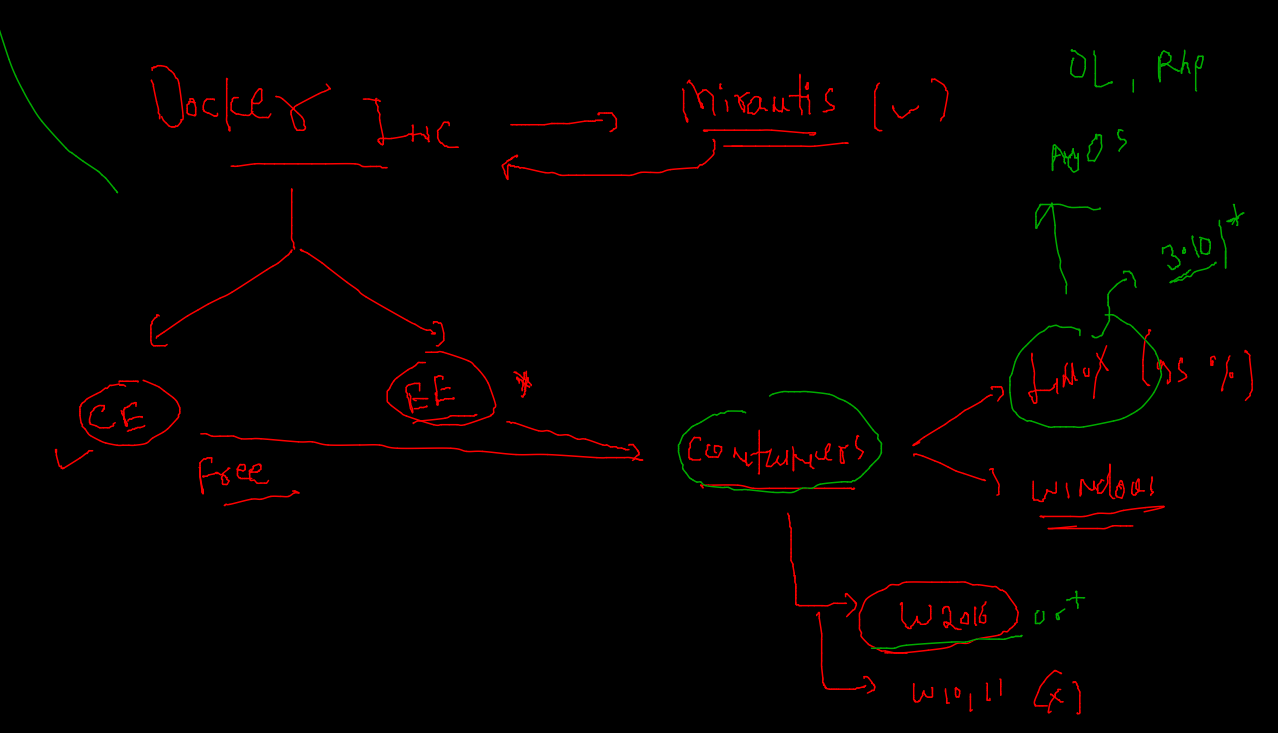 Docker Inc
Mirantis (✓)
OL, Rhp
Any OS
3.10+
CE
EE *
Free
Containers
Linux (95%)
Windows
W2016 or +
W10,11 (x)